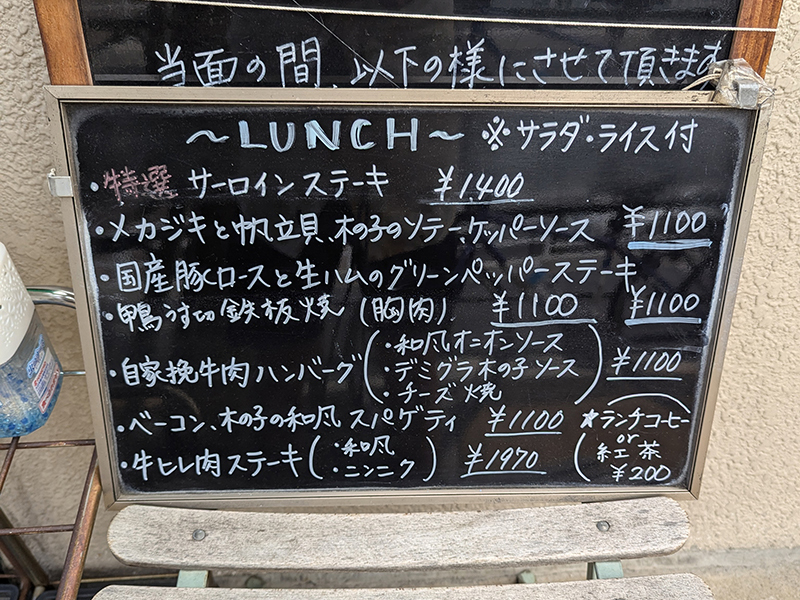 当面の間、以下の様にさせて頂きます
～LUNCH～ ※サラダ・ライス付
・特選 サーロインステーキ ¥1400
・メカジキと帆立貝、木の子のソテー、ケッパーソース ¥1100
・国産豚ロースと生ハムのグリーンペッパーステーキ ¥1100
・鴨うす切 鉄板焼 (胸肉) ¥1100
・自家挽牛肉ハンバーグ ¥1100
・和風オニオンソース
・デミグラ木の子ソース
・チーズ焼
・ベーコン、木の子の和風 スパゲティ ¥1100
・牛ヒレ肉ステーキ ¥1970
・和風
・ニンニク
★ランチコーヒー
or
紅茶
¥200